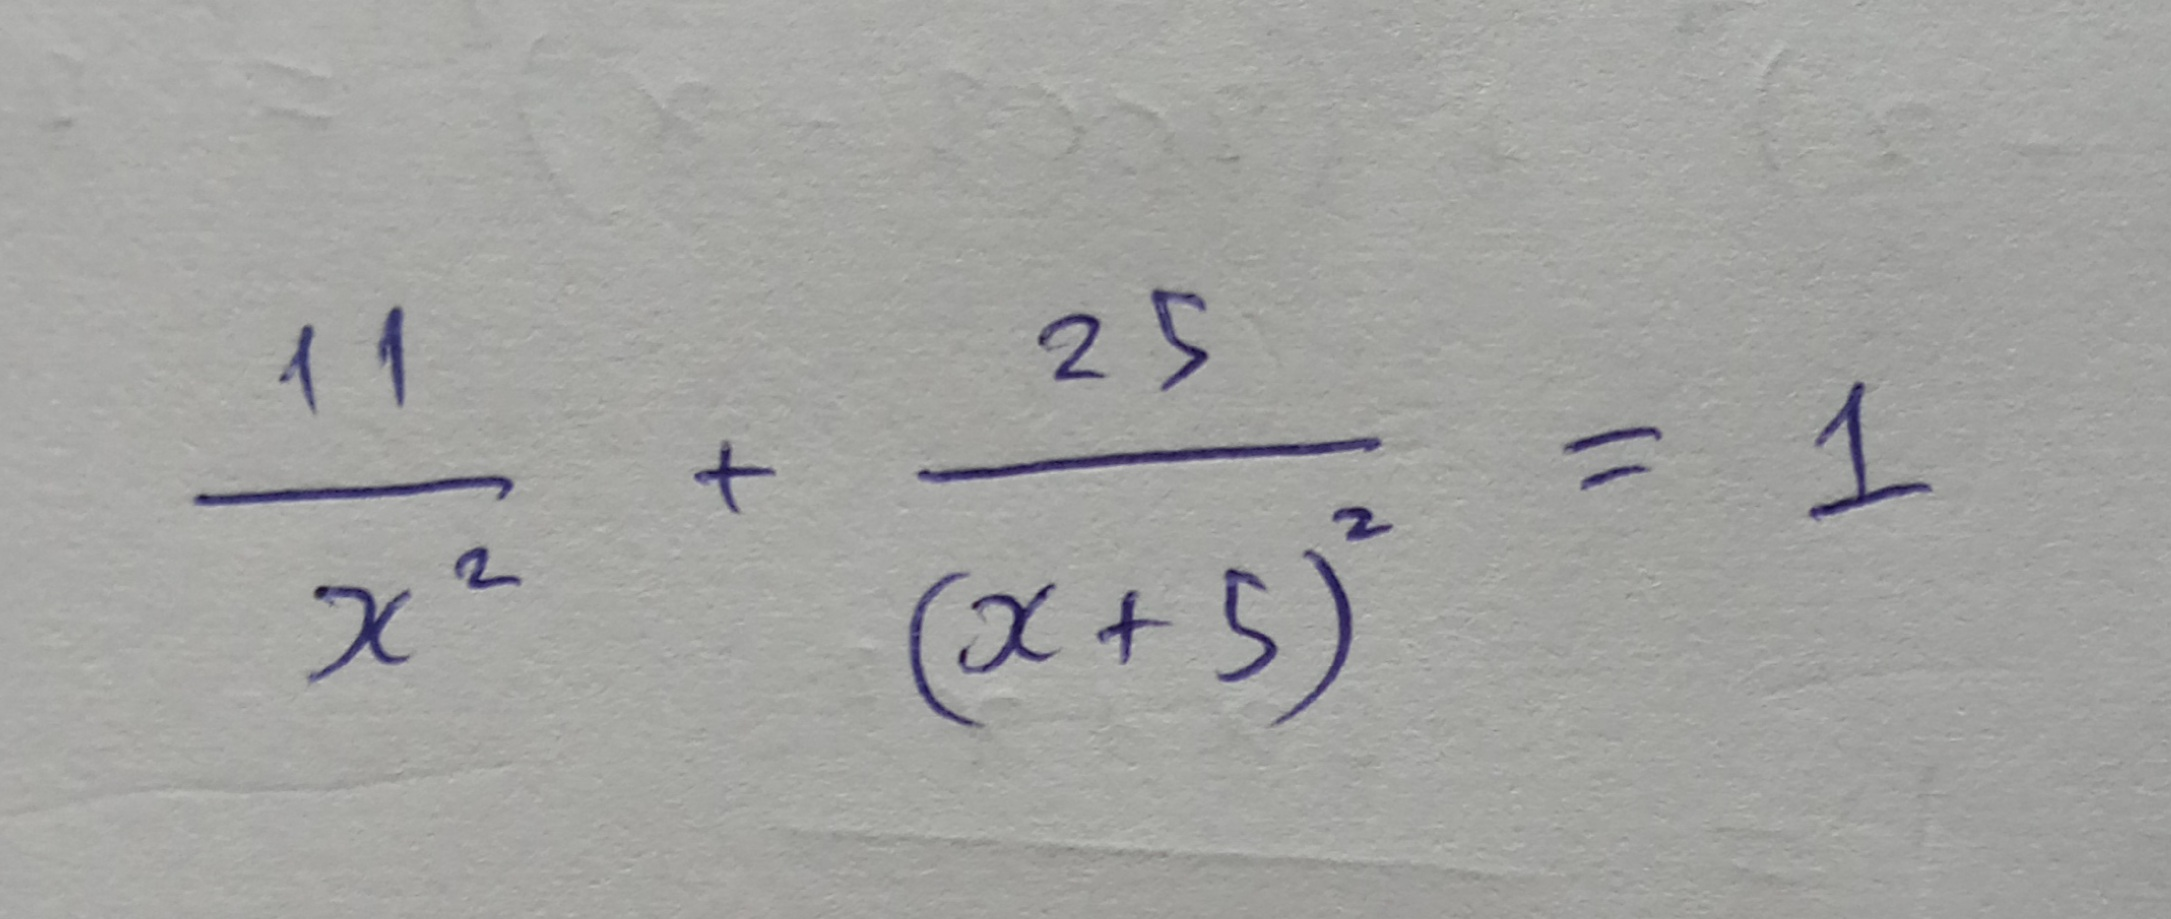 11/x² + 25/(x+5)² = 1